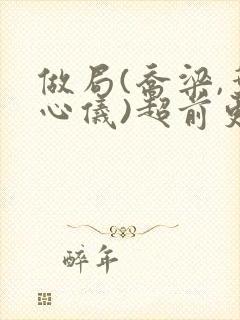 做局(乔梁,
心仪)超前
醉年